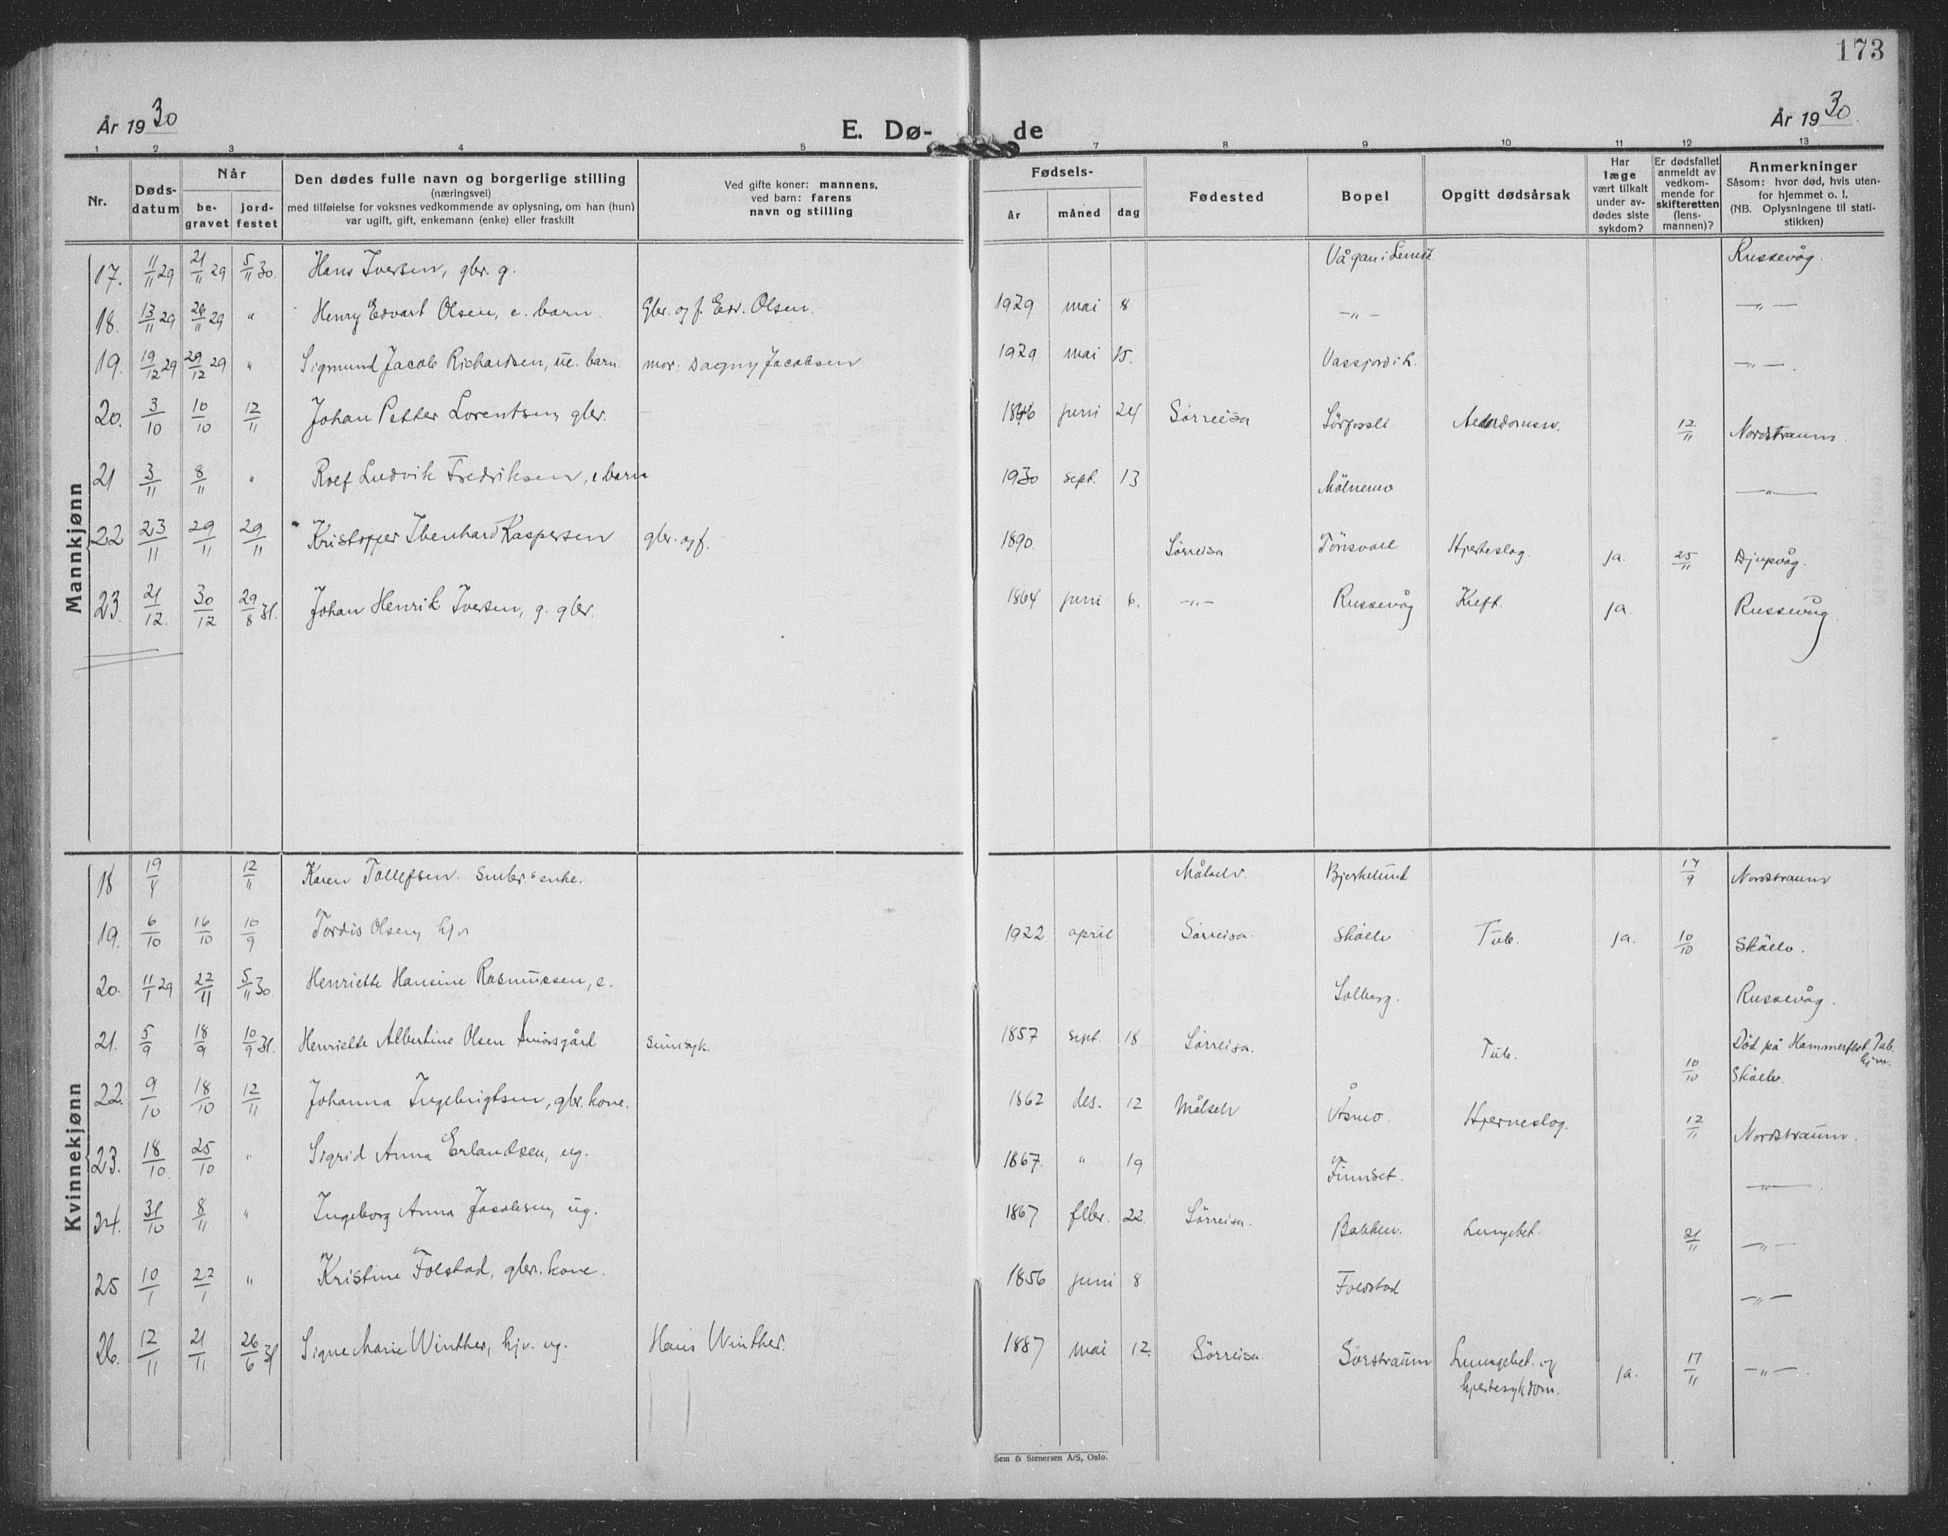 173
År 1930 E. Dø- de År 1930.
1 2 3 4 5 7 8 9 10 11 12 13
Nr. Døds-datum Når be-gravet jord-festet
Den dødes fulle navn og borgerlige stilling
(næringsvei)
med tilføielse for voksnes vedkommende av oplysning, om han (hun)
var ugift, gift, enkemann (enke) eller fraskilt
Ved gifte koner: mannens,
ved barn: farens
navn og stilling
Fødsels- år måned dag
Fødested
Bopel
Opgitt dødsårsak
Har læge vært tilkalt under av-dødes siste sykdom?
Er dødsfallet anmeldt av vedkom-mende for skifteretten (lens-mannen)?
Anmerkninger
Såsom: hvor død, hvis uten-for hjemmet o. l.
(NB. Oplysningene til stati-stikken)
Mannkjønn
17. 11/11 29 21/11 29 5/11 30. Hans Iversen, gbr. g. Vågan i Lenvik Russevåg.
18. 13/11 29 26/11 29 " Henry Edvart Olsen, e. barn. Gbr. og f. Edv. Olsen. 1929 mai 8 —"— —"—
19. 19/12 29 29/12 29 " Sigmund Jacob Richardsen, ue. barn mor: Dagny Jacobsen 1929 mai 15. Vassjordvik. —"—.
20. 3/10 10/10 12/11 Johan Petter Lorentsen, gbr. 1846 juni 24 Sørreisa Sørfossli Alderdomsv. 12/11 Nordstraum.
21 3/11 8/11 " Rolf Ludvik Fredriksen, e barn 1930 sept. 13 Målnemo —"—
22 23/11 29/11 29/11 Kristoffer Ibenhard Kaspersen gbr. og f. 1890. Sørreisa Tønsvoll Hjerteslag. ja. 25/11 Djupvåg.
23. 21/12. 30/12 29/8 31. Johan Henrik Iversen, g. gbr. 1864 juni 6. —"— Russevåg Kreft. ja. Russevåg.
Kvinnekjønn
18 19/4 12/11 Karen Tollefsen. Småbr.s enke. Målselv. Bjerkelund 17/9 Nordstraum
19. 6/10 16/10 10/9 Tordis Olsen, hjv 1922 april Sørreisa. Skøelv Tub. ja. 10/10 Skøelv.
20. 11/1 29 22/11 5/11 30. Henriette Hansine Rasmussen, e. Solberg. Russevåg.
21. 5/9 18/9 10/9 31. Henriette Albertine Olsen Smørsgård sinnsyk. 1857 sept. 18 Sørreisa. Tub. 10/10 Død på Hammerfest Tub. hjem. Skøelv.
22. 9/10 18/10 12/11 Johanna Ingebrigtsen, gbr. kone. 1862 des. 12 Målselv Åsmo Hjerneslag. 12/11 Nordstraum.
23. 18/10. 25/10 " Sigrid Anna Erlandsen, ug. 1867. " 19 Finnset. —"—
24. 31/10 8/11 " Ingeborg Anna Jacobsen, ug. 1867 febr. 22. Sørreisa. Bakken. Lungebet. 21/11 —"—
25 10/1 22/1 " Kristine Folstad, gbr. kone. 1856 juni 8 Foldstad —"—
26. 12/11 21/11 26/6 31 Signe Marie Winther, hjv. ug. Hans Winther. 1887 mai 12. Sørreisa. Sørstraum Lungebet. og hjertesykdom. ja. 17/11 —"—.
Sem & Stenersen A/S, Oslo.